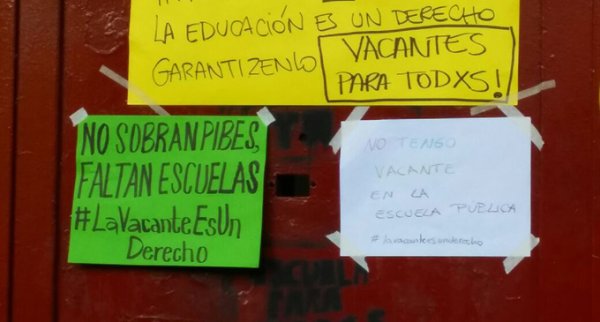 LA EDUCACIÓN ES UN DERECHO
GARANTIZENLO
VACANTES
PARA TODXS!
NO SOBRAN PIBES,
FALTAN ESCUELAS
#LaVacanteEsUn
Derecho
NO TENGO
VACANTE
EN LA
ESCUELA PUBLICA
#lavacanteesunderecho
ESCUELA
PARA